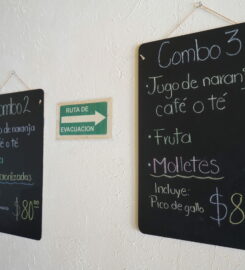 Combo 2
de naranja
é o té
RUTA DE
EVACUACIÓN
Combo 3
• Jugo de naranj
café o té
• Fruta
• Molletes
Incluye:
Pico de gallo
$8
$80